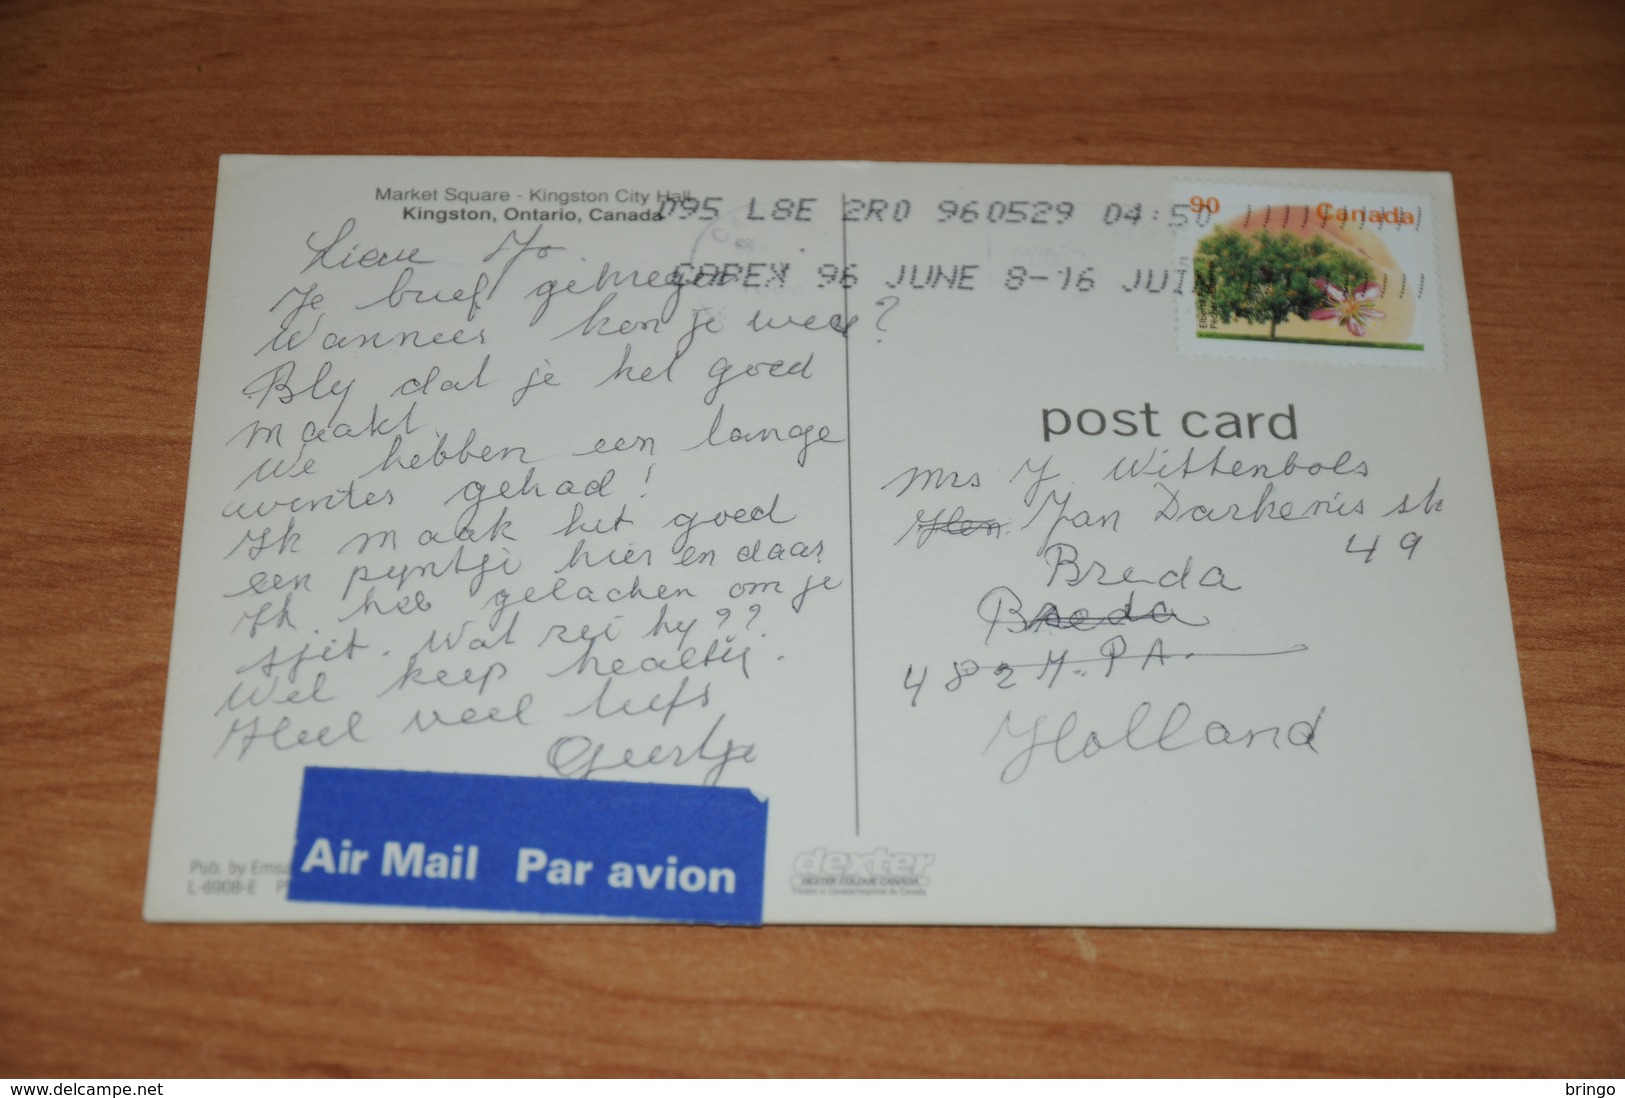 Market Square - Kingston City Hall
Kingston, Ontario, Canada
095 L8E 2R0 960529 04:50
CAPEX 96 JUNE 8-16 JUIN
90
Canada
Lieve Jo
Je brief gekregen
Wanneer kon je weg?
Bly dat je het goed
maakt.
We hebben een lange
winter gehad!
Ik maak het goed
een pyntje hier en daar
Ik heb gelachen om je
Wat zei hy??
Wel keep healty.
Heel veel liefs
Geertje
post card
Mrs J. Wittenbols
Jan Darkenis st
49
Breda
Breda
4824.PA.
Holland
Air Mail Par avion
Pub. by Emsa
L-6908-E
dexter
DEXTER COLOUR CANADA
www.delcampe.net
bringo